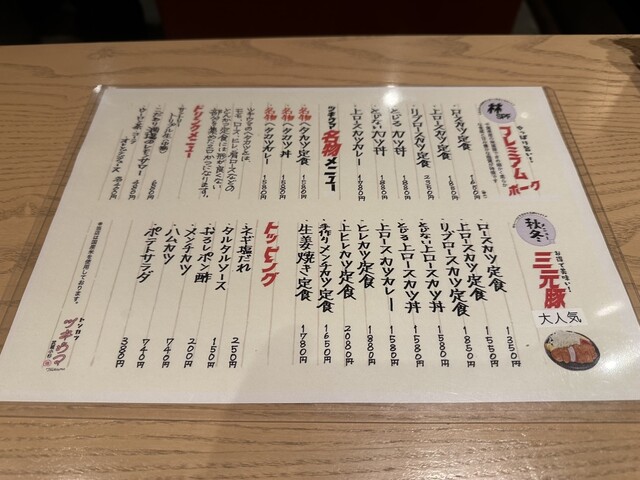 林SPF
やっぱり旨い！
プレミアムポーク
・ロースカツ定食 1650円
・上ロースカツ定食 1880円
・リブロースカツ定食 2350円
・とじる カツ丼 1880円
・とじない カツ丼 1880円
・上ロースカツカレー 1980円
ツキウマ名物メニュー
・名物 ヘタカツ定食 1580円
・名物 ヘタカツ丼 1580円
・名物 ヘタカツカレー 1580円
ツキウマのヘタカツとは、
ドリンクメニュー
秋冬
お店で美味い！
三元豚
大人気
・ロースカツ定食 1350円
・上ロースカツ定食 1580円
・リブロースカツ定食 1850円
・とじない上ロースカツ丼 1580円
・とじる上ロースカツ丼 1580円
・上ロースカツカレー 1580円
・ヒレカツ定食 1880円
・上ヒレカツ定食 2080円
・手作りメンチカツ定食 1650円
・生姜焼き定食 1780円
トッピング
・ネギ塩だれ 250円
・タルタルソース 150円
・おろしポン酢 200円
・メンチカツ 740円
・ハムカツ 740円
・ポテサラダ 380円
トンカツ
ツキウマ